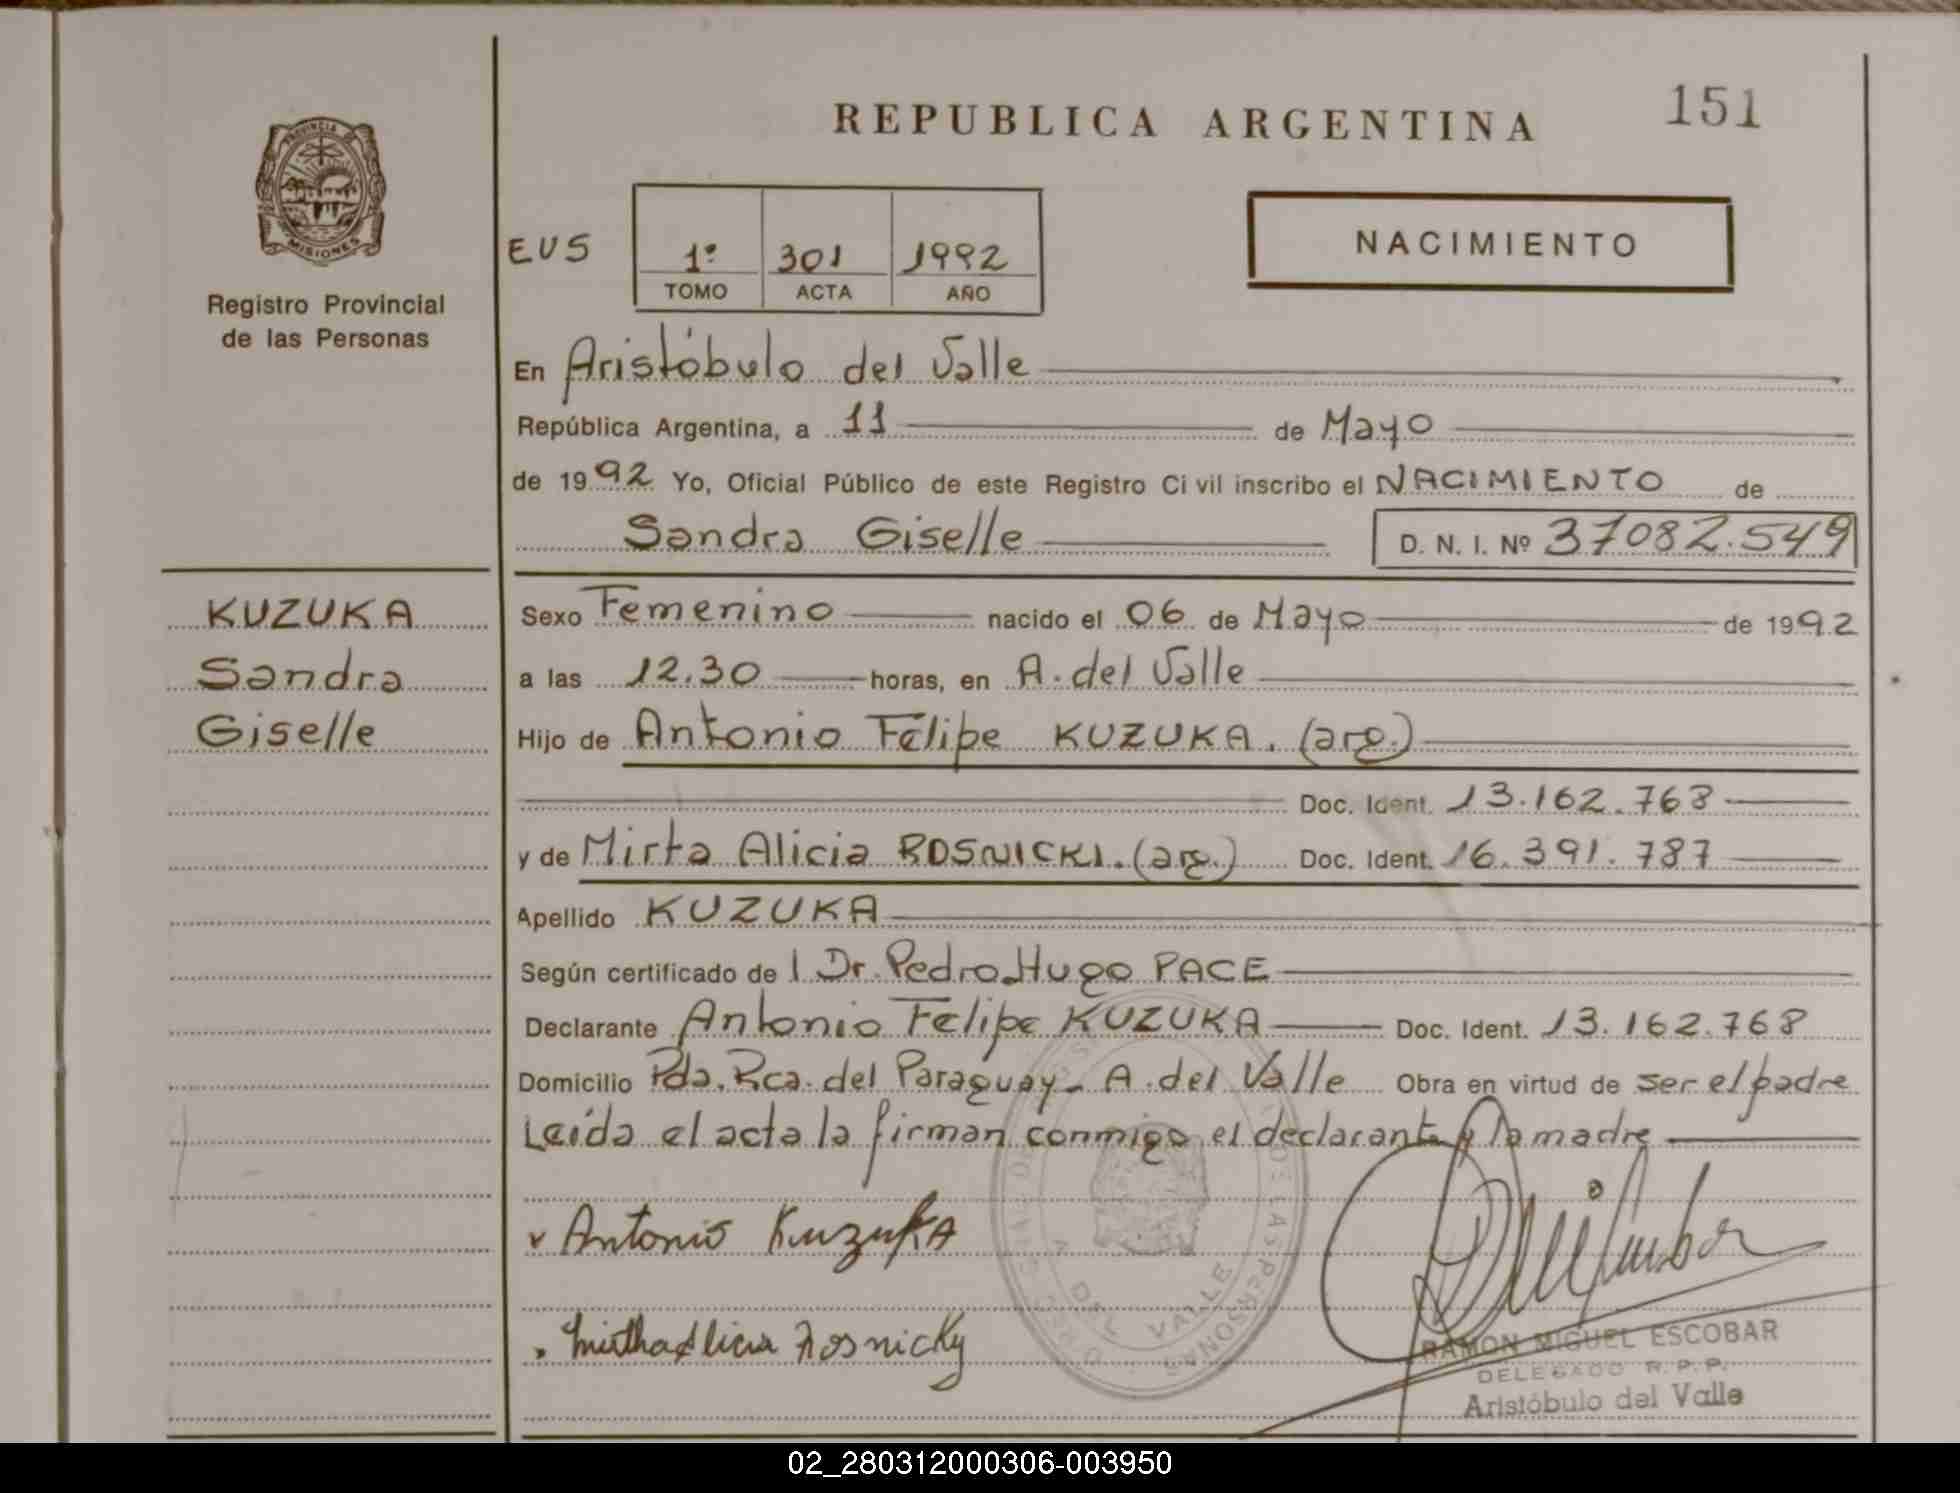 REPUBLICA ARGENTINA
151
PROVINCIA DE
MISIONES
Registro Provincial
de las Personas
EUS
1º 301 1992
TOMO ACTA AÑO
NACIMIENTO
En Aristóbulo del Valle
República Argentina, a 11 de Mayo
de 1992 Yo, Oficial Público de este Registro Civil inscribo el NACIMIENTO de
Sandra Giselle D. N. I. Nº 37082.549
KUZUKA
Sandra
Giselle
Sexo Femenino nacido el 06 de Mayo de 1992
a las 12.30 horas, en A. del Valle
Hijo de Antonio Felipe KUZUKA. (arg.)
Doc. Ident. 13.162.768
y de Mirta Alicia ROSNICKI. (arg.) Doc. Ident. 16.391.787
Apellido KUZUKA
Según certificado de l Dr. Pedro Hugo PACE
Declarante Antonio Felipe KUZUKA Doc. Ident. 13.162.768
Domicilio Pda. Rca. del Paraguay - A. del Valle Obra en virtud de ser el padre
Leída el acta la firman conmigo el declarante y la madre
Antonio Kuzuka
Mirtha Alicia Rosnicky
DE LAS PERSONAS
DEL VALLE
RAMON MIGUEL ESCOBAR
DELEGADO R. P. P.
Aristóbulo del Valle
02_280312000306-003950